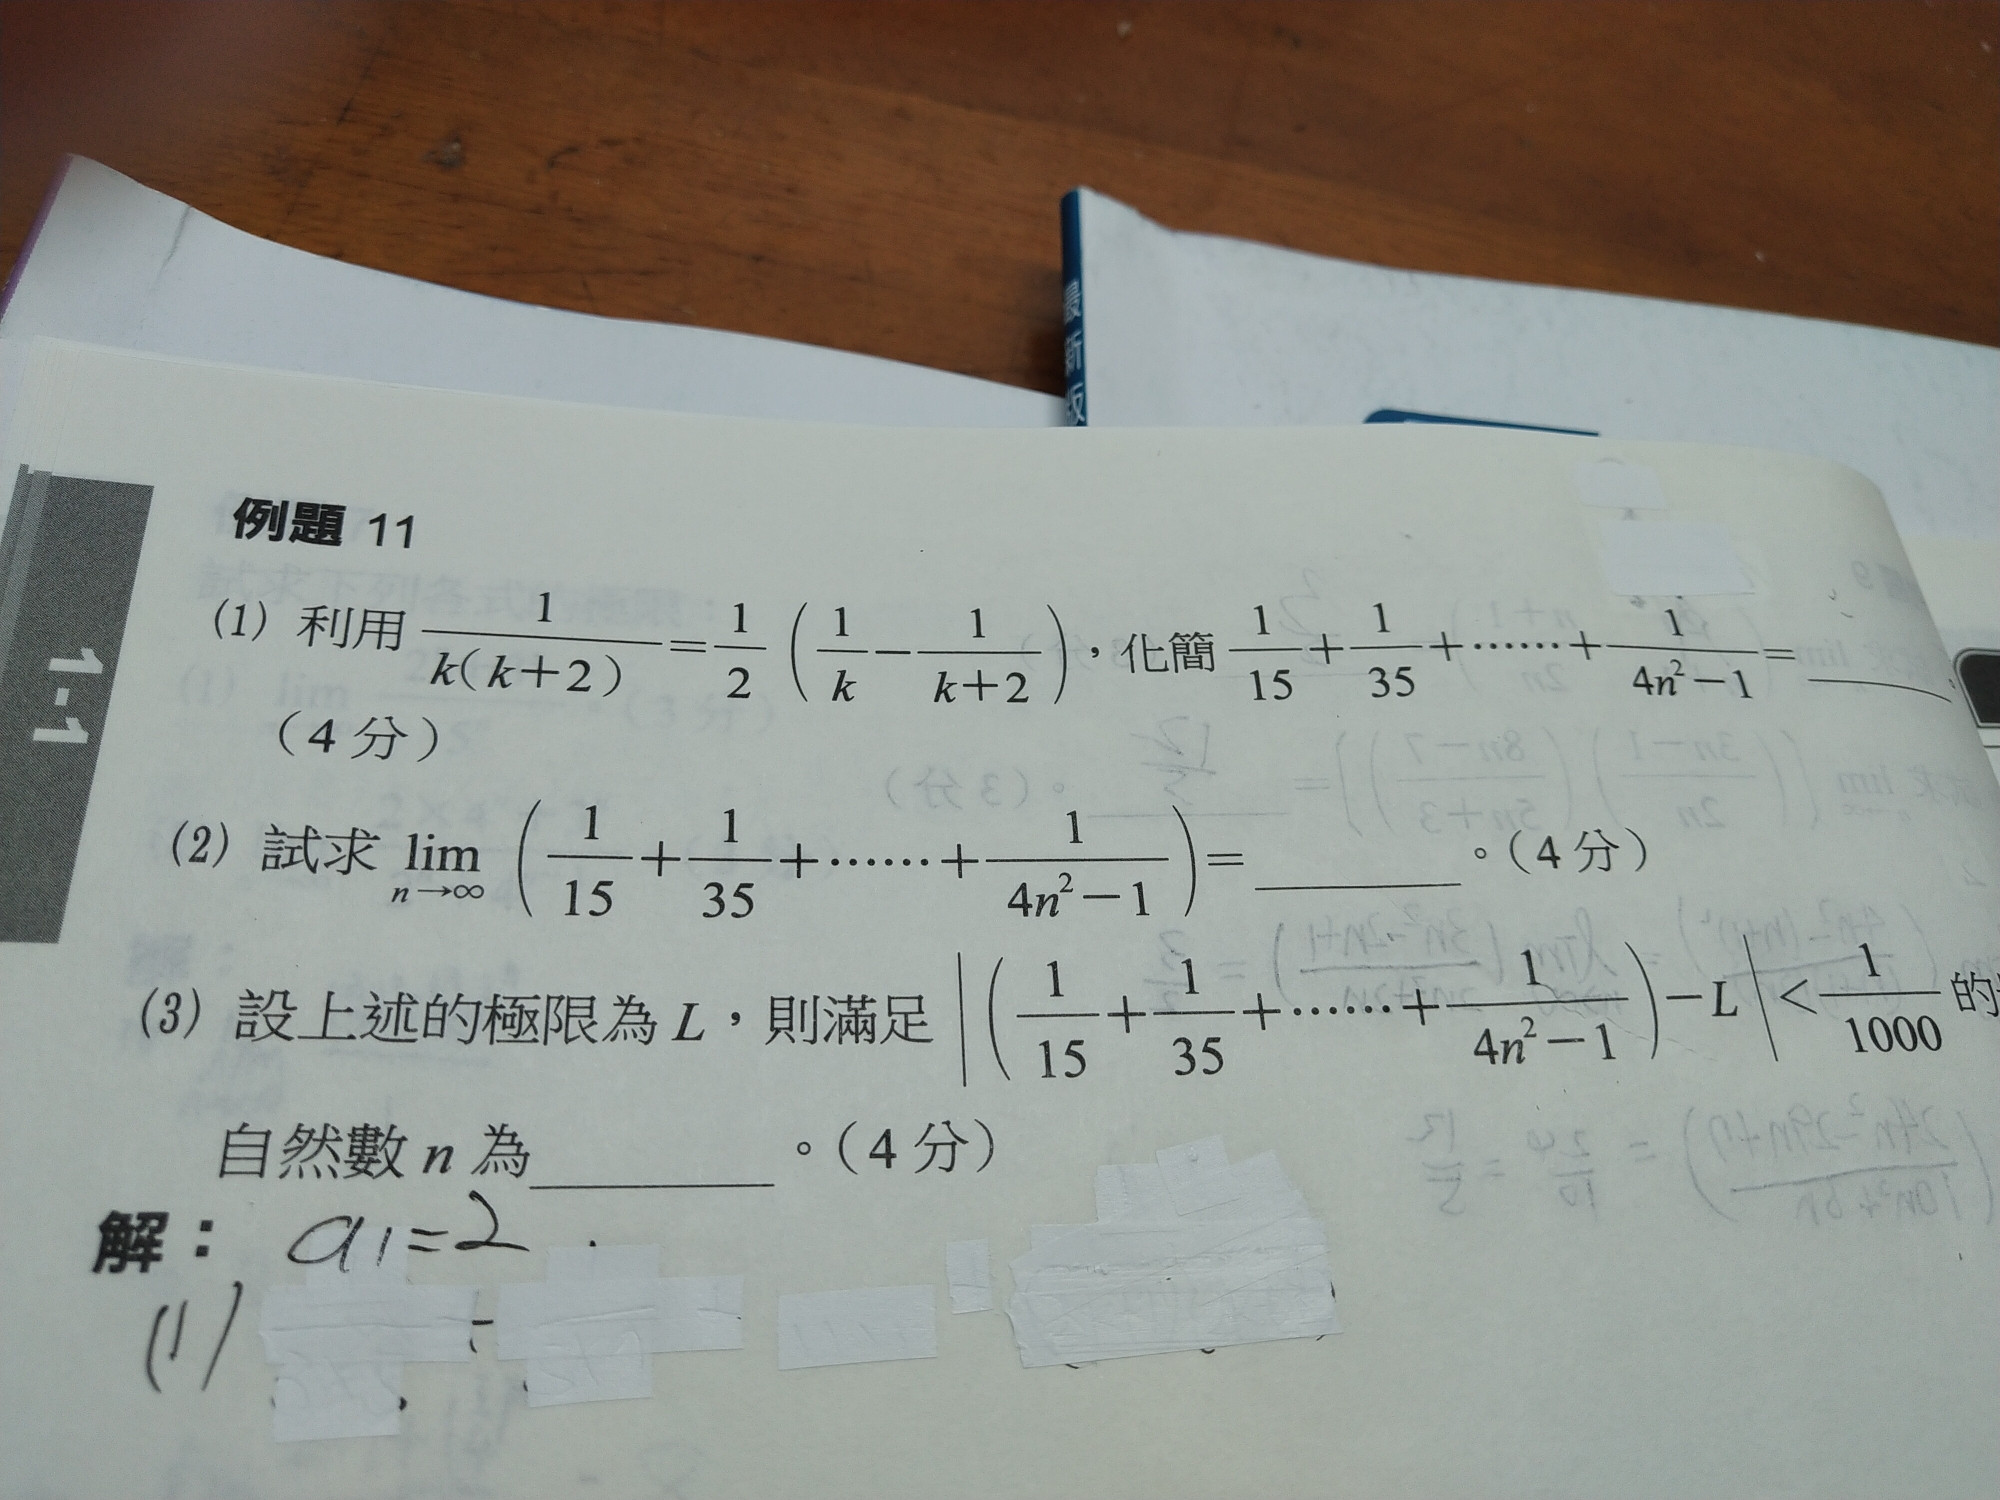 最新版
例題 11
1-1
(1) 利用 1/(k(k+2)) = 1/2 (1/k − 1/(k+2)),化簡 1/15 + 1/35 + …… + 1/(4n²−1) = ____
(4 分)
(2) 試求 lim n→∞ (1/15 + 1/35 + …… + 1/(4n²−1)) = ____。(4 分)
(3) 設上述的極限為 L,則滿足 |(1/15 + 1/35 + …… + 1/(4n²−1)) − L| < 1/1000 的
自然數 n 為____。(4 分)
解: a1=2
(1)